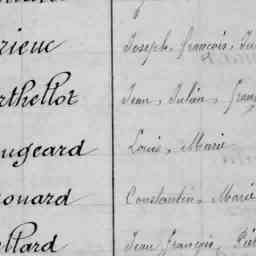 rieuc Joseph, françois,
rthellot Jean, Julien,
ugeard Louis, Marie
ouard Constantin, Marie
llard Jean françois,